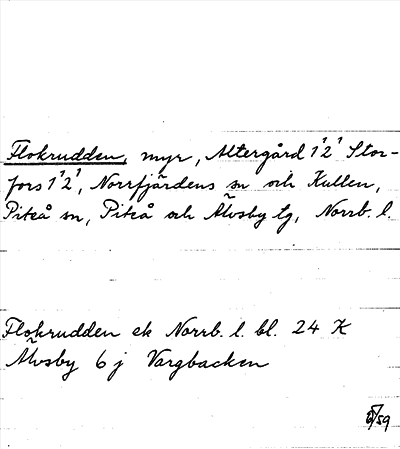 Flokrudden, myr, Altergård 1¹2¹ Stor-
fors 1¹2¹, Norrfjärdens sn och Kullen,
Piteå sn, Piteå och Älvsby tg, Norrb. l.
Flokrudden ek Norrb. l. bl. 24 K
Älvsby 6 j Vargbacken
/59